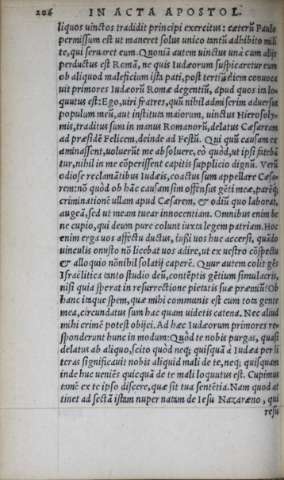 206 IN ACTA APOSTOL.
liquos uinctos tradidit principi exercitus: cæterũ Paulo
permissum est ut maneret solus unico tantũ adhibito mili
te, qui seruaret eum. Quoniã autem uinctus unà cum alijs
perductus est Romã, ne quis Iudæorum suspicaretur eum
ob aliquod maleficium ista pati, post tertiũ diem conuoca
uit primores Iudæorũ Romæ degentiũ, apud quos in loc
quutus est: Ego, uiri fratres, quũ nihil admiserim aduersus
populum meũ, aut instituta maiorum, uinctus Hierosoly-
mis, traditus sum in manus Romanorũ, delatus Cæsaream
ad præsidẽ Felicem, deinde ad Festũ. Qui quũ causam ex
aminassent, uoluerũt me absoluere, eò quòd, ut ipsi fatebã
tur, nihil in me cõperissent capitis supplicio dignũ. Verũ
odiose reclamãtibus Iudæis, coactus sum appellare Cæsa-
rem: nõ quòd ob hãc causam sim offensus gẽti meæ, parẽq;
criminationẽ ullam apud Cæsarem, & odiũ quo laborat,
augeã, sed ut meam tuear innocentiam. Omnibus enim be
ne cupio, qui deum pure colunt iuxta legem patriam. Hoc
enim erga uos affectu ductus, iussi uos huc accersi, quãdo
uinculis onusto nõ licebat uos adire, ut ex uestro cõspectu
& alloquio nõnihil solatij caperẽ. Quur autem colit gẽs
Israëlitica tanto studio deũ, contẽptis gẽtium simulacris,
nisi quia sperat in resurrectione pietatis suæ præmiũ? Ob
hanc inque spem, quæ mihi communis est cum tota gente
mea, circundatus sum hac quam uidetis catena. Nec aliud
mihi crimẽ potest obijci. Ad hæc Iudæorum primores re-
sponderunt hunc in modum: Quòd te nobis purgas, quasi
delatus ab aliquo, scito quòd neq; quisquã à Iudæa per li
teras significauit nobis aliquid mali de te, neq; quisquam
inde huc ueniẽs quicquã de te mali loquutus est. Cupimus
tamẽ ex te ipso discere, quæ sit tua sentẽtia. Nam quod at
tinet ad sectã istam nuper natam de Iesu Nazaræno, qui
resu